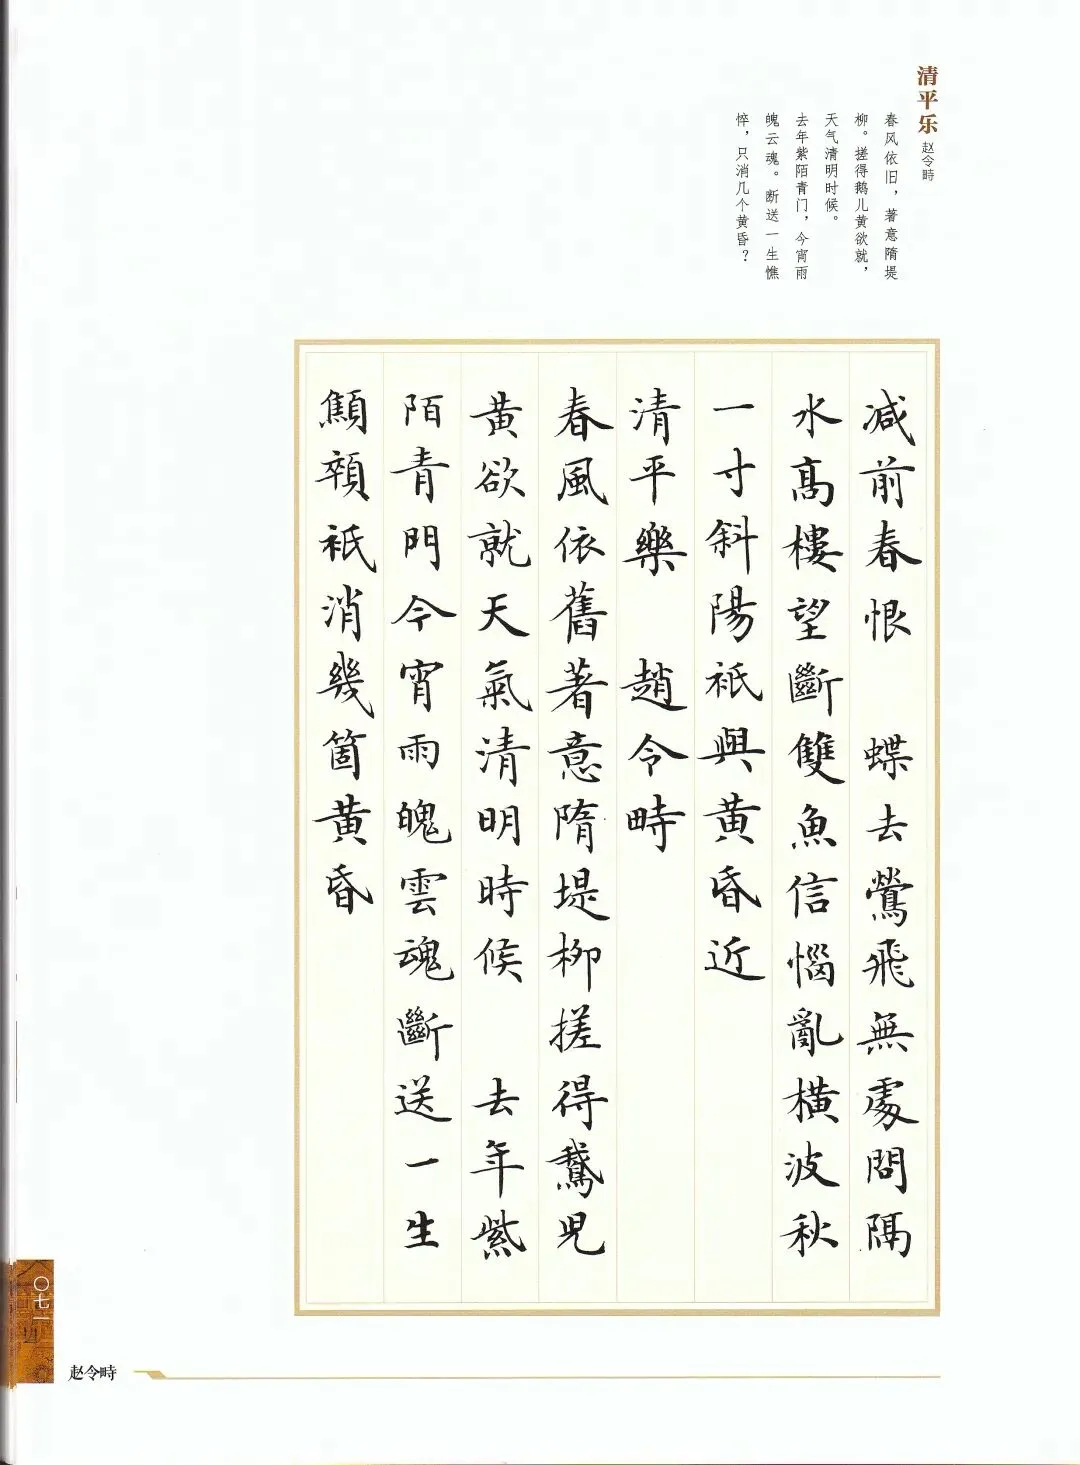 清平乐 赵令畤
春风依旧，著意隋堤
柳。搓得鹅儿黄欲就，
天气清明时候。
去年紫陌青门，今宵雨
魄云魂。断送一生憔
悴，只消几个黄昏？
减前春恨 蝶去鶯飛無處問隔
水高樓望斷雙魚信惱亂橫波秋
一寸斜陽祇與黄昏近
清平樂 趙令畤
春風依舊著意隋堤柳搓得鵞児
黄欲就天氣清明時候 去年紫
陌青門今宵雨魄雲魂斷送一生
顦顇祇消幾箇黄昏
〇七一
赵令畤